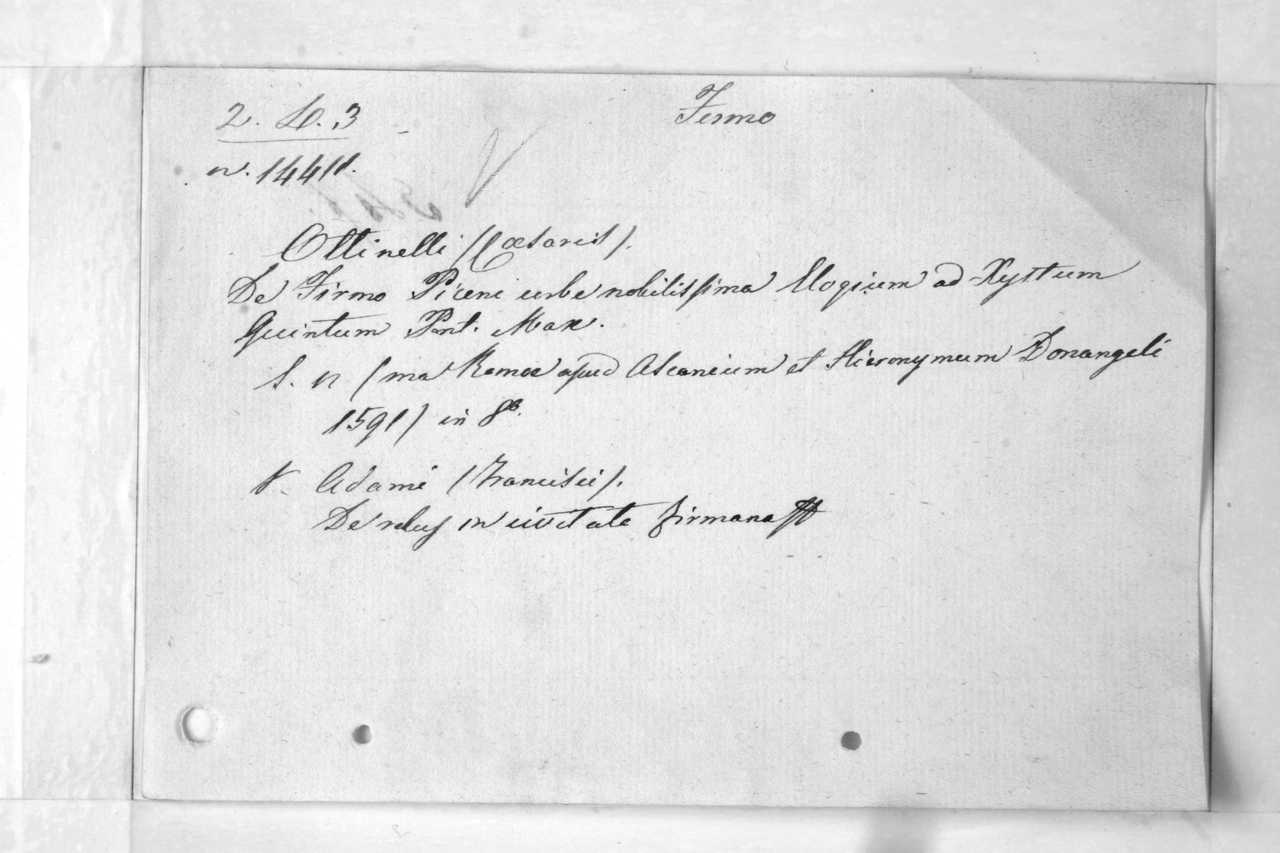 2. L. 3
Fermo
n. 14411.
Ottinelli (Cæsaris).
De Firmo Piceni urbe nobilissima Elogium ad Xystum
Quintum Pont. Max.
S. n (ma Romæ apud Ascanium et Hieronymum Donangeli
1591) in 8º.
V. Adami (Francisci).
De rebus in civitate firmana